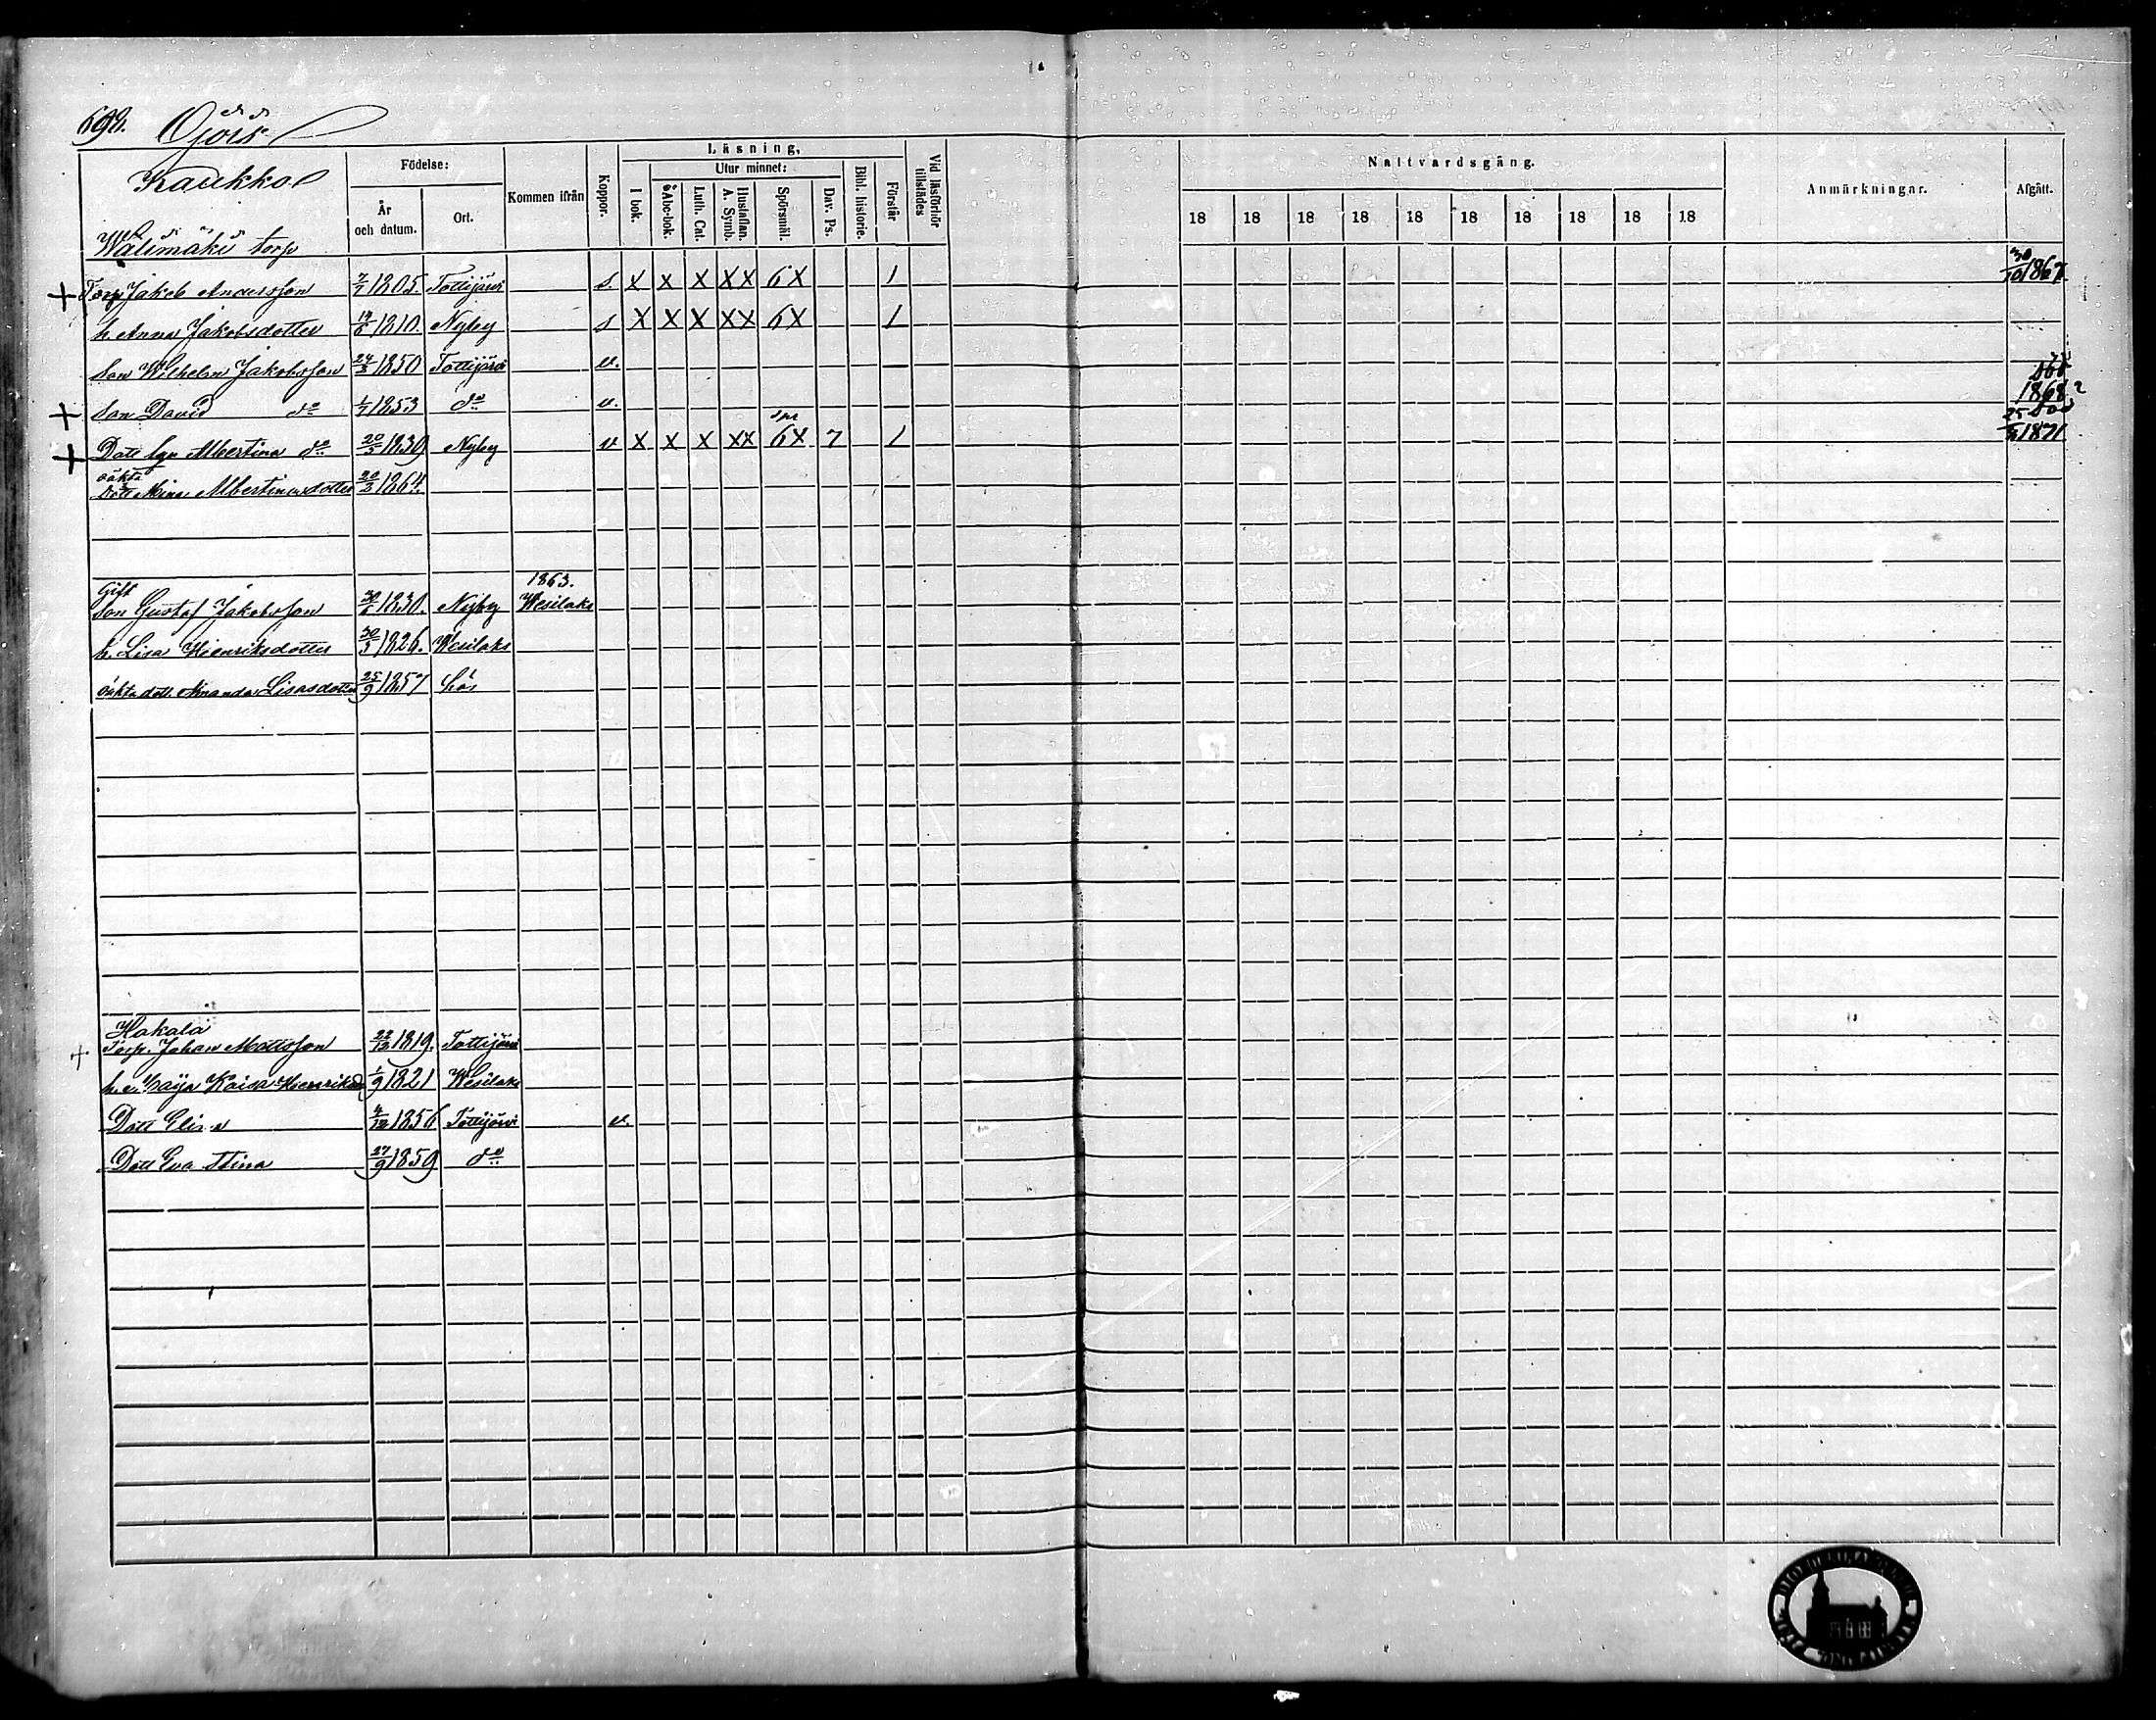 698. Ojois
Kaukko
Födelse: Kommen ifrån Koppor. Läsning, Vid läsförhör tillstädes Nattvardsgång. Anmärkningar. Afgått.
År och datum. Ort. I bok. Utur minnet: Bibl. historie. Förstår
Abc-bok. Luth. Cat. Hustaflan. A. Symb. Spörsmål. Dav. Ps.
18 18 18 18 18 18 18 18 18 18
Wälimäki torp
+ Torp Jakob Andersson 7/7 1805. Tottijärvi s. X X X XX 6X 1 30/10 1867.
h. Anna Jakobsdotter 1810. Nyby s X X X XX 6X 1
Son Wilhelm Jakobsson 24/5 1850 Tottijärvi v.
+ Son David do 1/7 1853 do v. 1868
+ Dott Albertina do 20/5 1839 Nyby v X X X XX 6X 7 1 1871
oäkta
Dott Mina Albertinasdotter 1864.
Gift 1863.
Son Gustaf Jakobsson 30/6 1830. Nyby Wesilaks
h. Lisa Henriksdotter 30/3 1826. Wesilaks
oäkta dott. Amanda Lisasdotter 25/9 1857
Hakala
+ Torp. Johan Mattsson 22/12 1819. Tottijärvi
h. Maija Kaisa Henriksd 1/9 1821 Wesilaks
Dott Elisa 4/12 1856 Tottijärvi v.
Dott Eva Stina 27/9 1859 do